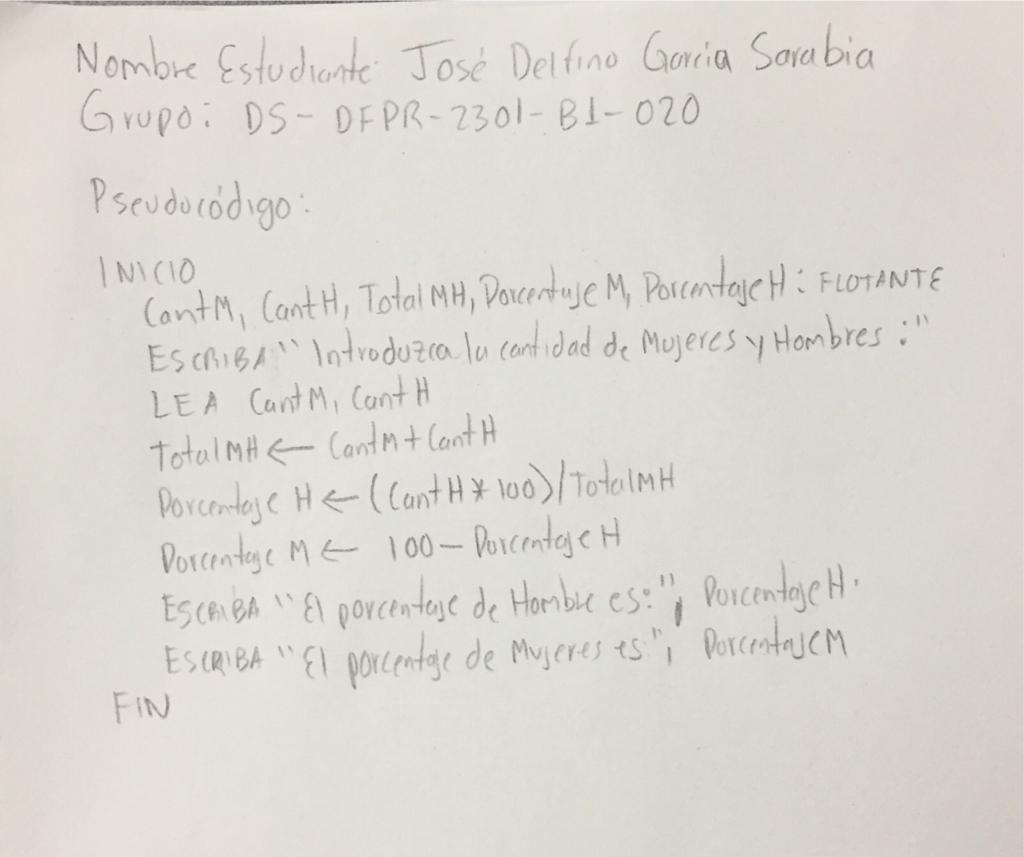 Nombre Estudiante: José Delfino García Sarabia
Grupo: DS-DFPR-2301-B1-020
Pseudocódigo:
INICIO
CantM, CantH, TotalMH, PorcentajeM, PorcentajeH: FLOTANTE
ESCRIBA "Introduzca la cantidad de Mujeres y Hombres:"
LEA CantM, CantH
TotalMH ← CantM + CantH
Porcentaje H ← (CantH * 100)/TotalMH
Porcentaje M ← 100 - Porcentaje H
ESCRIBA "El porcentaje de Hombre es:", PorcentajeH.
ESCRIBA "El porcentaje de Mujeres es", PorcentajeM
FIN